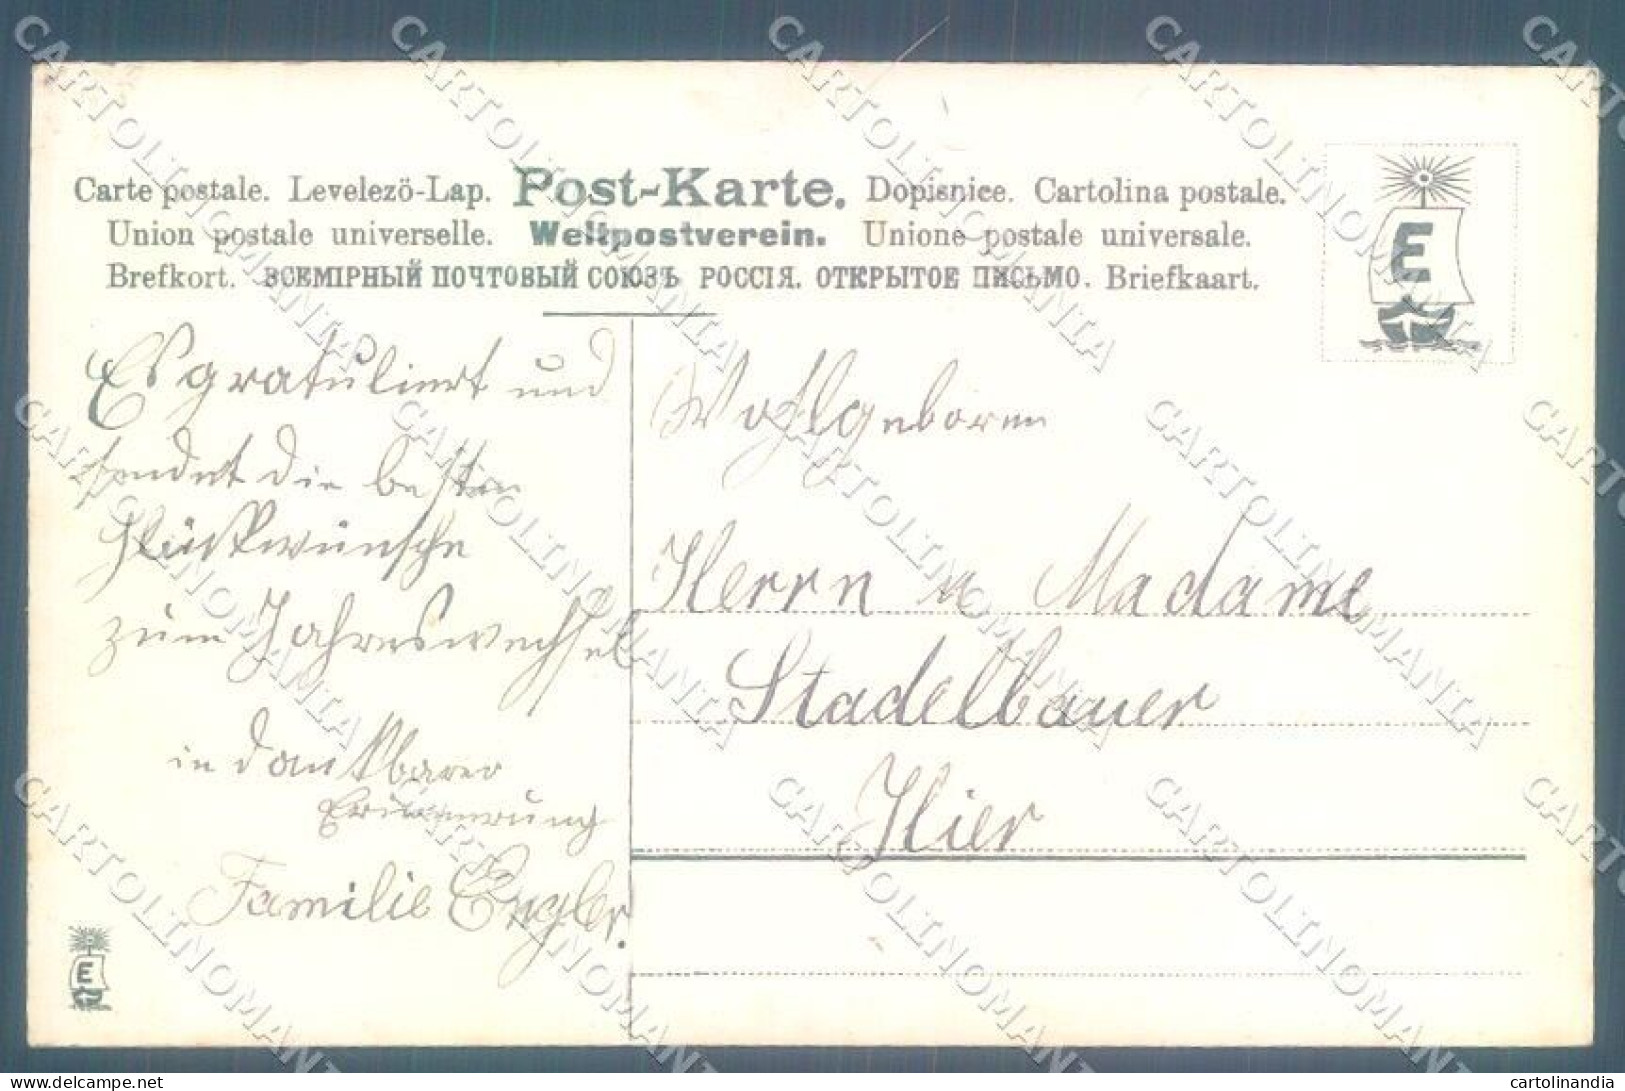 Carte postale. Levelezö-Lap. Post-Karte. Dopisnice. Cartolina postale.
Union postale universelle. Weltpostverein. Unione postale universale.
Brefkort. ВСЕМІРНЫЙ ПОЧТОВЫЙ СОЮЗЪ РОССІЯ. ОТКРЫТОЕ ПИСЬМО. Briefkaart.
E
Es gratuliert und
sendet die besten
Glückwünsche
zum Jahreswechsel
in dankbarer
Erinnerung
Familie Engler.
Wohlgeboren
Herrn u Madame
Stadelbauer
Hier
E
CARTOLINOMANIA
delcampe.net
cartolinandia